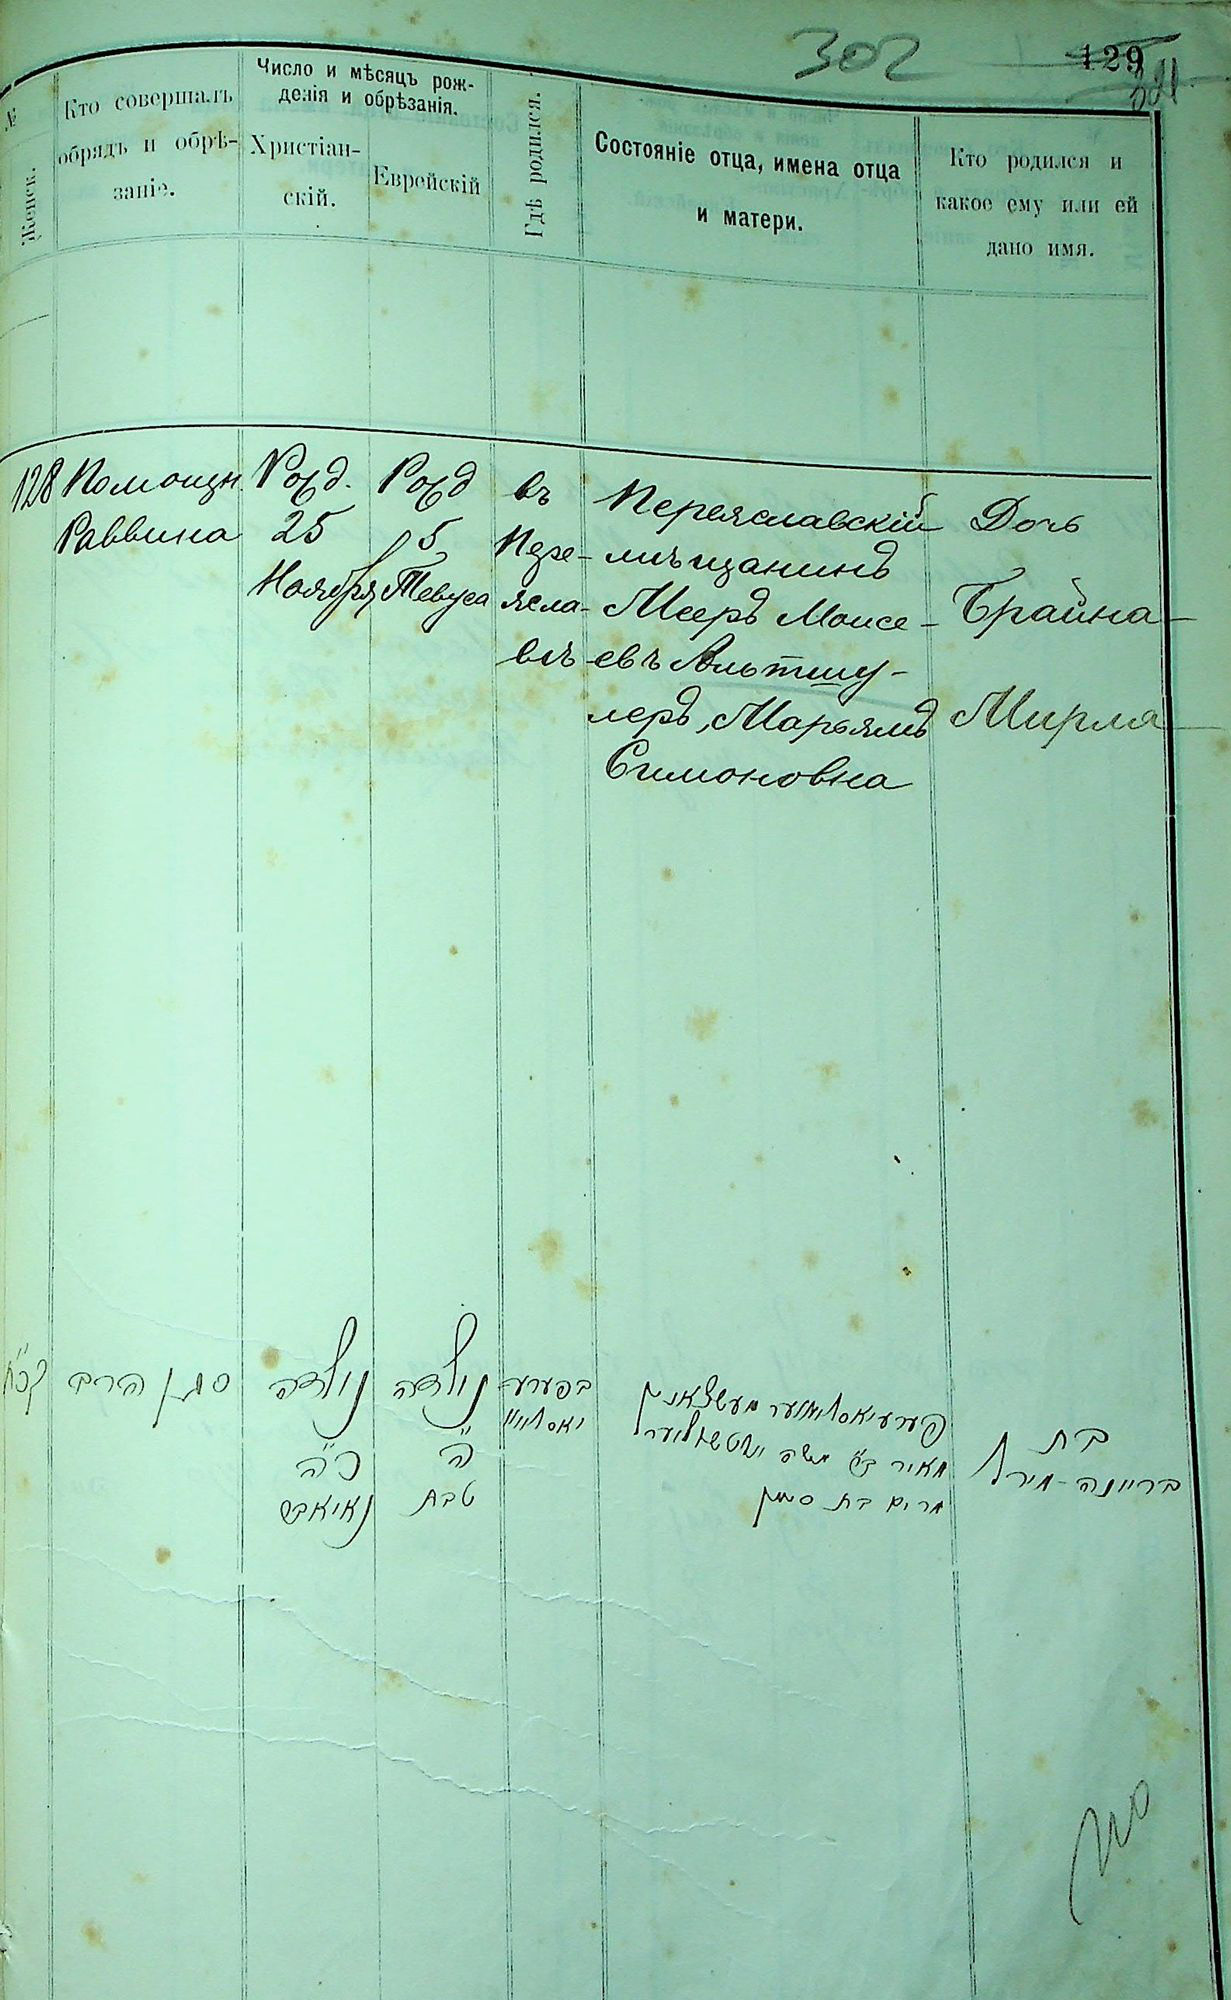 302
129
№
Женск.
Кто совершалъ
обрядъ и обрѣ-
заніе.
Число и мѣсяцъ рож-
денія и обрѣзанія.
Христіан-
скій.
Еврейскій
Гдѣ родился.
Состояніе отца, имена отца
и матери.
Кто родился и
какое ему или ей
дано имя.
128
Помощн.
Раввина
Рожд.
25
Ноября
Рожд
5
Тевуса
въ
Пере-
ясла-
влѣ
Переяславскій
мѣщанинъ
Мееръ Моисе-
евъ Альтшу-
леръ, Марьямъ
Симоновна
Дочь
Брайна
Мирля
קכ"ח
סגן הרב
נולדה
כ"ה
נאיאבש
נולדה
ה'
טבת
בפערע
יאסלויו
פערעיאסלאווער מעשצאנין
מאיר ב"ר משה אלטשולער
מרים בת סימן
בת
בריינה-מירל